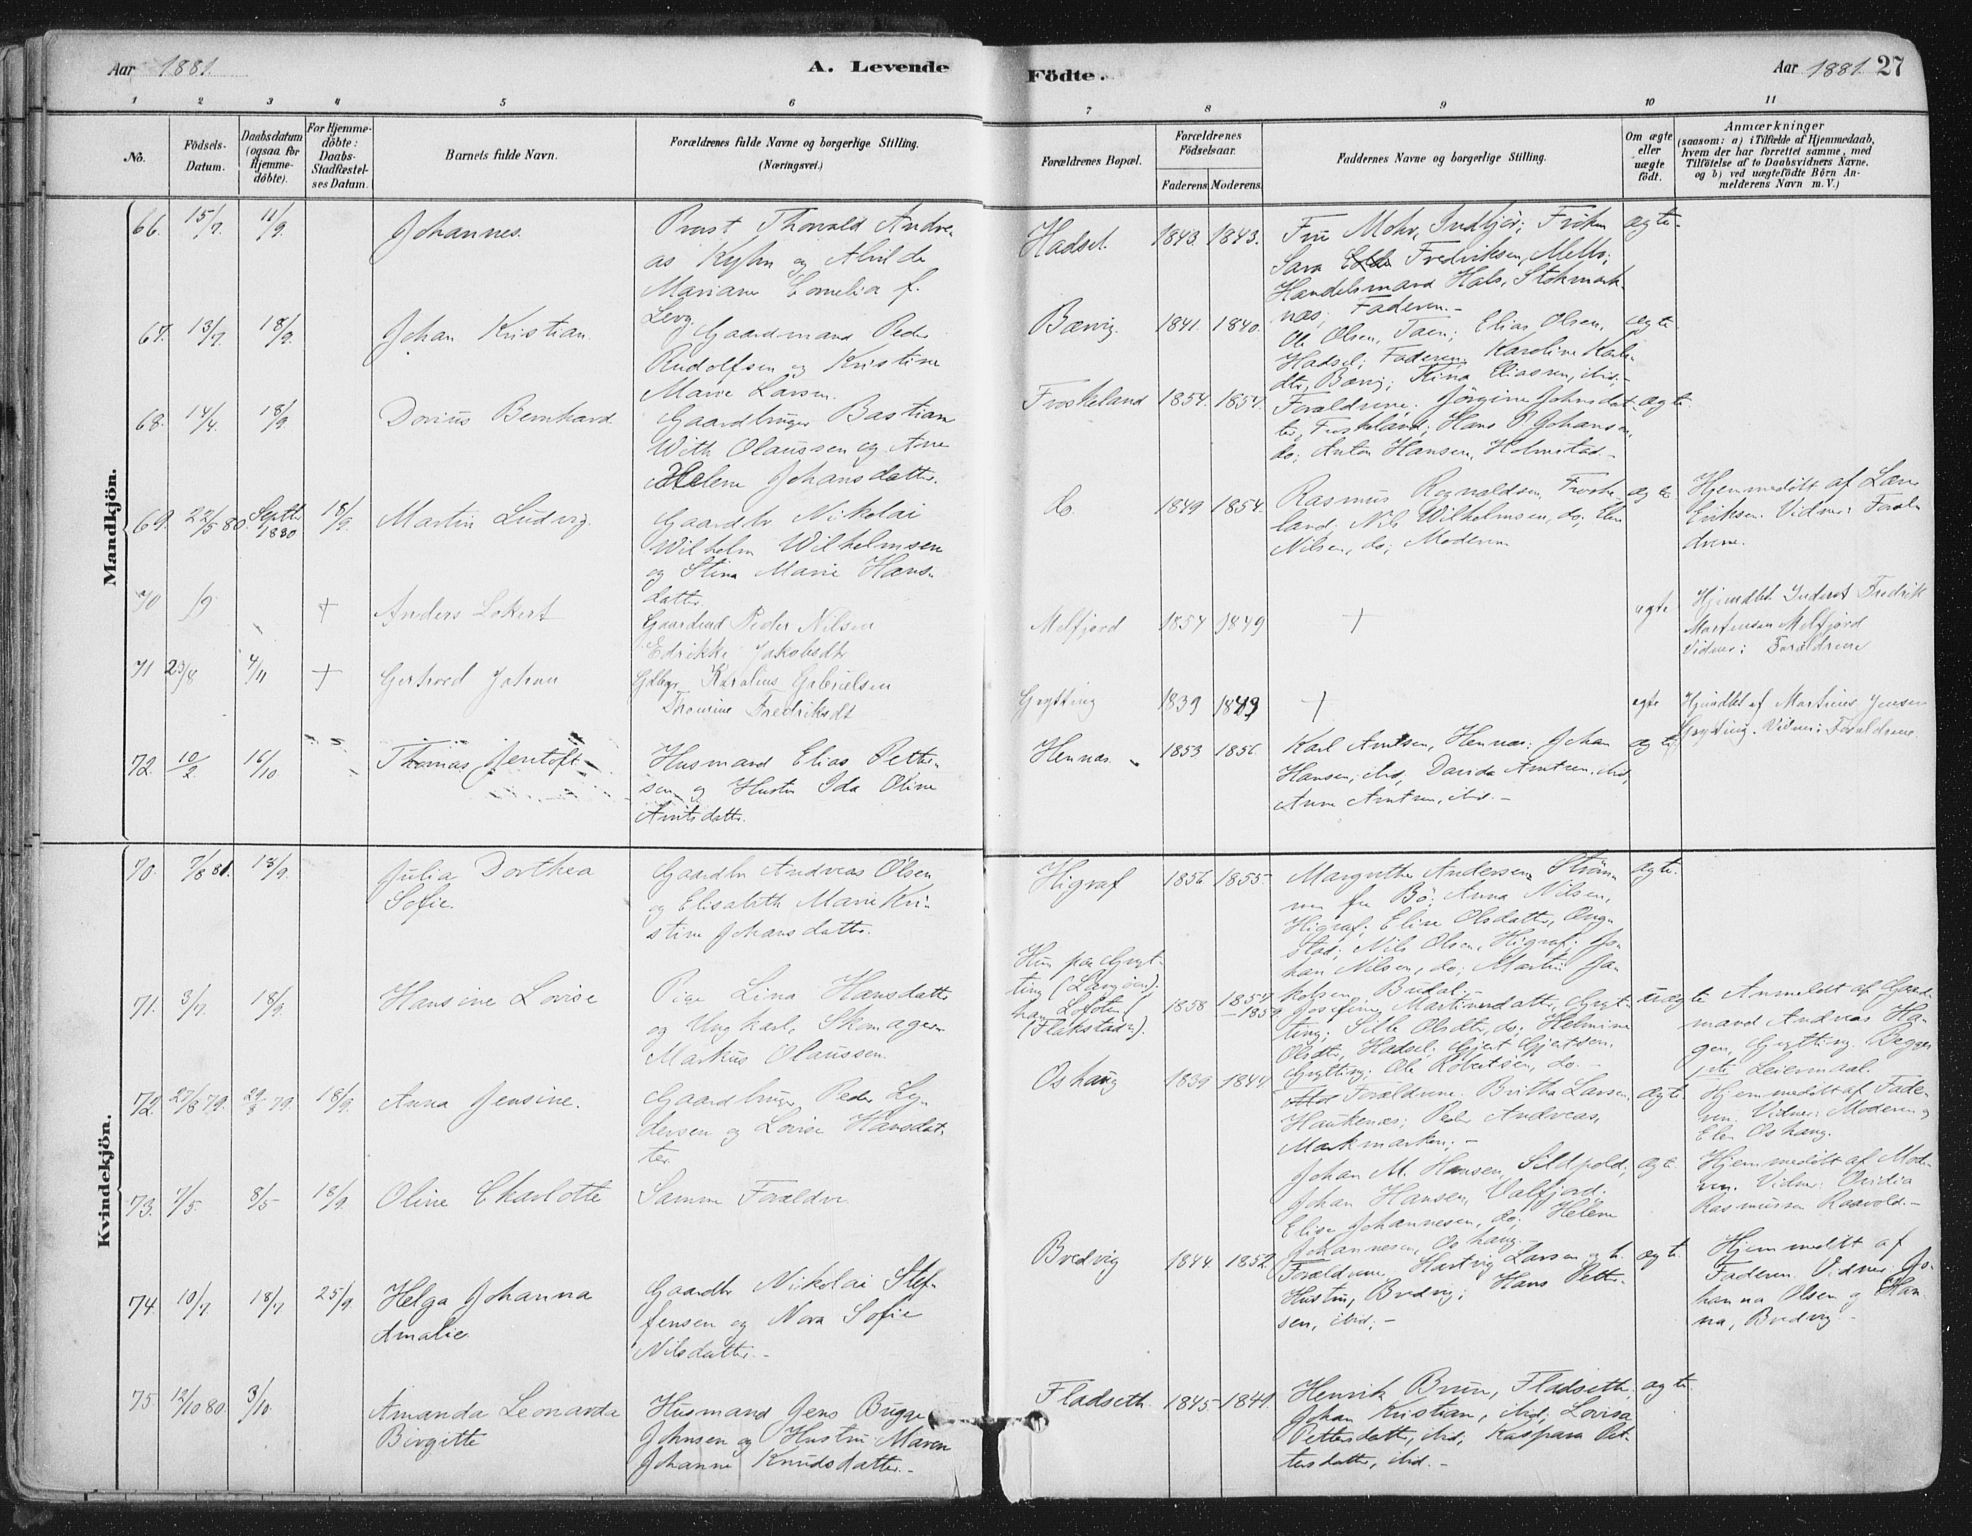 Aar 1881. A. Levende Födte. Aar 1881. 27
1 2 3 4 5 6 7 8 9 10 11
No.
Födsels-Datum.
Daabsdatum (ogsaa for Hjemme-döbte).
For Hjemme-döbte: Daabs-Stadfæstel-ses Datum.
Barnets fulde Navn.
Forældrenes fulde Navne og borgerlige Stilling.
(Næringsvei.)
Forældrenes Bopæl.
Forældrenes Födselsaar.
Faderens. Moderens.
Faddernes Navne og borgerlige Stilling.
Om ægte eller uægte født.
Anmærkninger
(saasom: a) i Tilfælde af Hjemmedaab,
hvem der har forrettet samme, med
Tilföielse af to Daabsvidners Navne,
og b) ved uægtefödte Börn An-
melderens Navn m. V.)
Mandkjön.
66. 15/7. 11/9. Johannes. Provst Thorvald Andre-
as Kyhn og Alvilda
Mariane Cornelia f.
Levy
Hadsel. 1843. 1843. Fru Mohr, ; Frøken
Sara Fredriksen, Melbo;
Handelsmand Hals, Stokmark-
næs; Faderen.- ægte
67. 13/7. 18/9. Johan Kristian. Gaardmand Peder
Rudolfsen og Kristine
Marie Larsen.
Børvig. 1841. 1840. Ole Olsen, Taen; Elias Olsen,
Hadsel; Faderen; Karoline Karls-
dtr, Børvig; Kina Eliassen, ibid.- ægte
68. 14/4. 18/9. Dorius Bernhard Gaardbruger Bastian
With Olaussen og Ane
Helene Johansdatter.
Froskeland 1854. 1854. Forældrene. Jørgine Johnsdat-
ter, Froskeland; Hans P. Johansen,
do; Anton Hansen, Holmstad.- ægte
69. 22/5 80. Septbr 1880 18/9. Martin Ludvig. Gaardbr Nikolai
Wilhelm Wilhelmsen
og Stina Marie Hans-
datter.
do. 1849 1854. Rasmus Regnaldsen, Froske-
land; Nils Wilhelmsen, do; Elen
Nilsen, do; Moderen ægte Hjemmedøbt af Lars
Eriksen. Vidner: Foræl-
drene.
70 /9 + Anders Lokert Gaardmd Peder Nilsen
Edrikke Jakobsdtr
Melfjord 1854 1849 + egte Hjemdbt Inderst Fredrik
Martinsen Melfjord
Vidner: Forældrene
71 23/8 4/11 + Gertrord Johan Gdbgr Karolius Gabrielsen
Tomine Fredriksdt
Grytting 1839 1849 + egte Hjemdbt af Martinus Jensen
Grytting. Vidner: Forældrene
72. 10/2 16/10 Thomas Jentoft Husmand Elias Petter-
sen og Hustru Ida Oline
Arntsdatter.
Hennæs. 1853 1856. Karl Arntsen, Hennæs; Johan
Hansen, ibid, Davida Arntsen, ibid,
Anne Arntsen, ibid.- ægte
Kvindekjön.
70. 7/8 81. 18/9. Julia Dorthea
Sofie. Gaardbr Andreas Olsen
og Elisabeth Marie Kri-
stine Johansdatter.
Higraf 1856 1855- Margrethe Andersen, Strøm-
men fra Bø; Anna Nilsen,
Higraf; Eline Olsdatter, Ong-
stad; Nils Olsen, Higraf; Jo-
han Nilsen, do; Martin Ja-
kobsen, Bredal.- ægte.
71. 3/7. 18/9. Hansine Lovise Pige Lina Hansdatter
og Ungkarl, Skomager
Markus Olaussen
Hun paa Gryt-
ting (Langøen);
han Lofoten
(Flakstad). 1858 1857 - 1859 Josefine Martinusdatter, Gryt-
ting; Sille Olsdtr, do; Helmine
Olsdtr, Hadsel; Gjert Gjertsen,
Grytting; Ole Robertsen, do.- uægte Anmeldt af Gaard-
mand Andreas Ha-
gen, Grytting. Begges
1ste Leiermaal.
72. 27/8 79. 29/8 79. 18/9. Anna Jensine. Gaardbruger Peder
dersen og Lovise Hansdat-
ter.
Oshaug 1839 1844 Forældrene. Britha Larsen,
Haukenæs; Peder Andreas,
Markmarken.- ægte. Hjemmedøbt af Fade-
ren. Vidner: Moderen og
Elen Oshaug.
73. 7/5. 8/5 18/9. Oline Charlotte Samme Forældre
Johan M. Hansen, Sildpold;
Johan Hansen, Valfjord;
Elise Johannesen, do; Helene
Johannesen, Oshaug.- ægte Hjemmedøbt af Mod-
ren. Vidner: Ovidia
Rasmussen Raavold.-
74. 10/7. 18/7 25/9. Helga Johanna
Amalie. Gaardbr Nikolai Stef-
fensen og Nora Sofie
Nilsdatter.-
Bredvig 1844. 1852. Forældrene, Hartvig Larsen og h.
Hustru, Bredvig; Hans Petter-
sen, ibid.- ægte. Hjemmedøbt af
Faderen. Vidner: Jo-
hanna Olsen og Han-
na, Bredvig.-
75. 12/10 80. 3/10. Amanda Leonarda
Birgitte Husmand Jens Bugge
Johnsen og Hustru Maren
Johanne Knudsdatter.-
Fladseth. 1845- 1841. Henrik Brun, Fladseth,
Johan Kristian, ibid, Lovisa
Pettersdatter, ibid, Kaspara Pet-
tersdatter, ibid.- ægte.